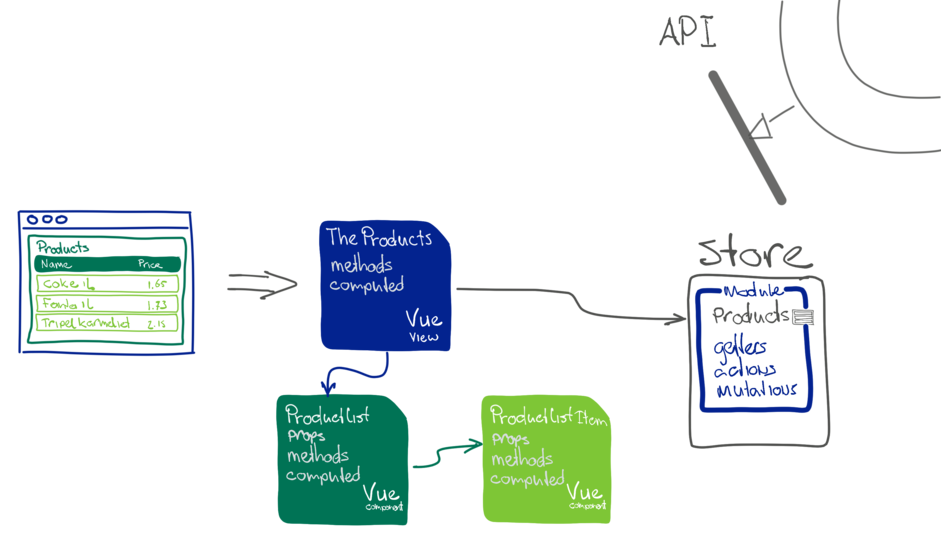 API
Products
Name Price
Coke 1L 1.65
Fanta 1L 1.73
Tripel karmeliet 2.15
The Products
methods
computed
Vue
View
Store
Module
Products
getters
actions
mutations
ProductList
props
methods
computed
Vue
component
ProductListItem
props
methods
computed
Vue
component